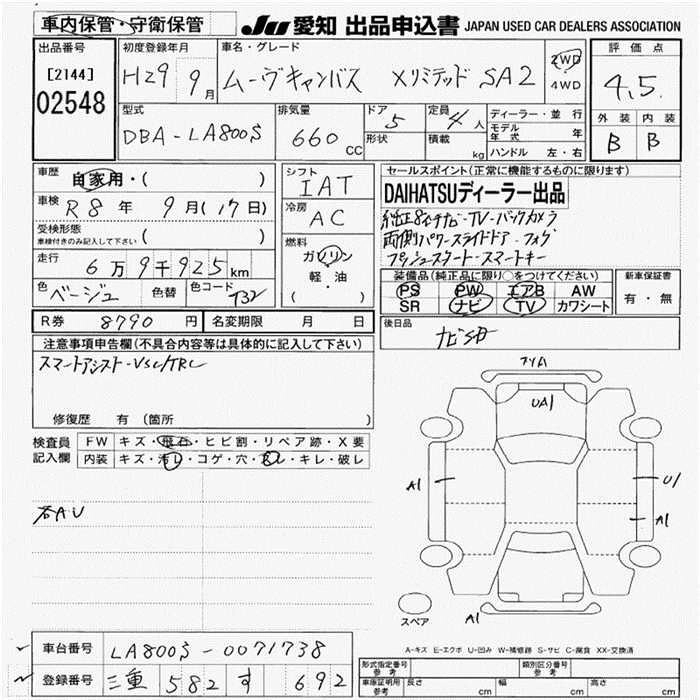 車内保管・守衛保管
JU 愛知 出品申込書 JAPAN USED CAR DEALERS ASSOCIATION
出品番号
[2144]
02548
初度登録年月
H29 9月
車名・グレード
ムーヴキャンバス Xリミテッド SA2
2WD
4WD
評価点
4.5
外装 内装
B B
型式
DBA-LA800S
排気量
660 CC
ドア 5
形状
定員 4人
積載 kg
ディーラー・並行
モデル年式 年
ハンドル 左・右
車歴
自家用・( )
車検 R8年 9月(17日)
受検形態
車検付きのみ記入して下さい ( )
走行
6万9千925km
色 ベージュ 色替 色コード T32
シフト
IAT
冷房
AC
燃料
ガソリン
軽・油
( )
セールスポイント(正常に機能するものに限ります)
DAIHATSUディーラー出品
純正8インチナビ-TV-バックカメラ
両側パワースライドドア-フォグ
プッシュスタート-スマートキー
装備品(純正品に限り○をつけてください)
PS PW エアB AW
SR ナビ TV カワシート
新車保証書
有・無
R券 8790円 名変期限 月 日
後日品
ナビSD
注意事項申告欄(不具合内容等は具体的に記入して下さい)
スマートアシスト-VSC/TRC
修復歴 有(箇所 )
検査員記入欄
FW キズ・飛石・ヒビ割・リペア跡・X要
内装 キズ・汚れ・コゲ・穴・スレ・キレ・破レ
右AU
UA1
A1
U1
A1
A1
スペア
A-キズ E-エクボ U-凹み W-補修跡 S-サビ C-腐食 XX-交換済
車台番号 LA800S-0071738
登録番号 三重 582 す 692
形式指定番号 参考
類別区分番号 参考
車庫証明用 参考 長さ cm 幅 cm 高さ cm